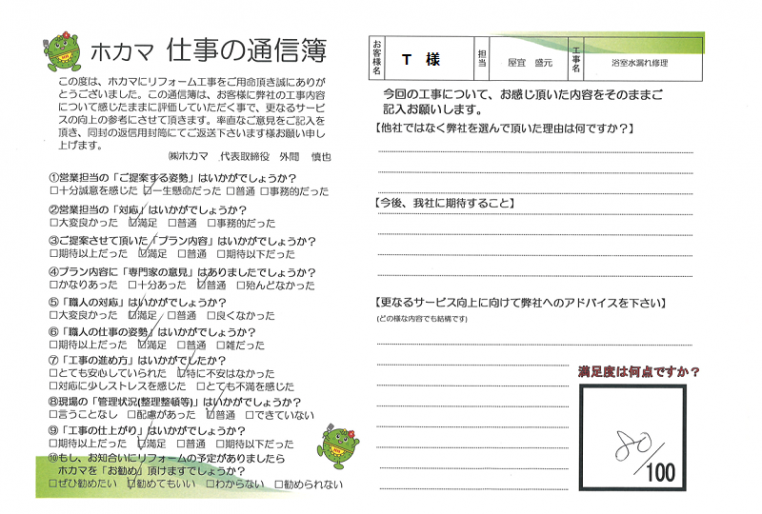 ホカマ 仕事の通信簿
この度は、ホカマにリフォーム工事をご用命頂き誠にありが
とうございました。この通信簿は、お客様に弊社の工事内容
について感じたままに評価していただく事で、更なるサービ
スの向上の参考にさせて頂きます。率直なご意見をご記入を
頂き、同封の返信用封筒にてご返送下さいます様お願い申し
上げます。
㈱ホカマ 代表取締役 外間 慎也
①営業担当の「ご提案する姿勢」はいかがでしょうか？
□十分誠意を感じた ☑一生懸命だった □普通 □事務的だった
②営業担当の「対応」はいかがでしょうか？
□大変良かった ☑満足 □普通 □事務的だった
③ご提案させて頂いた「プラン内容」はいかがでしょうか？
□期待以上だった ☑満足 □普通 □期待以下だった
④プラン内容に「専門家の意見」はありましたでしょうか？
□かなりあった □十分あった ☑普通 □殆んどなかった
⑤「職人の対応」はいかがでしょうか？
□大変良かった ☑満足 □普通 □良くなかった
⑥「職人の仕事の姿勢」はいかがでしょうか？
□期待以上だった ☑満足 □普通 □雑だった
⑦「工事の進め方」はいかがでしたか？
□とても安心していられた ☑特に不安はなかった
□対応に少しストレスを感じた □とても不満を感じた
⑧現場の「管理状況(整理整頓等)」はいかがでしょうか？
□言うことなし □配慮があった ☑普通 □できていない
⑨「工事の仕上がり」はいかがでしょうか？
□期待以上だった ☑満足 □普通 □期待以下だった
⑩もし、お知合いにリフォームの予定がありましたら
ホカマを「お勧め」頂けますでしょうか？
□ぜひ勧めたい ☑勧めてもいい □わからない □勧められない
お客様名 T 様 担当 屋宜 盛元 工事名 浴室水漏れ修理
今回の工事について、お感じ頂いた内容をそのままご
記入お願いします。
【他社ではなく弊社を選んで頂いた理由は何ですか？】
【今後、我社に期待すること】
【更なるサービス向上に向けて弊社へのアドバイスを下さい】
(どの様な内容でも結構です)
満足度は何点ですか？
80/100